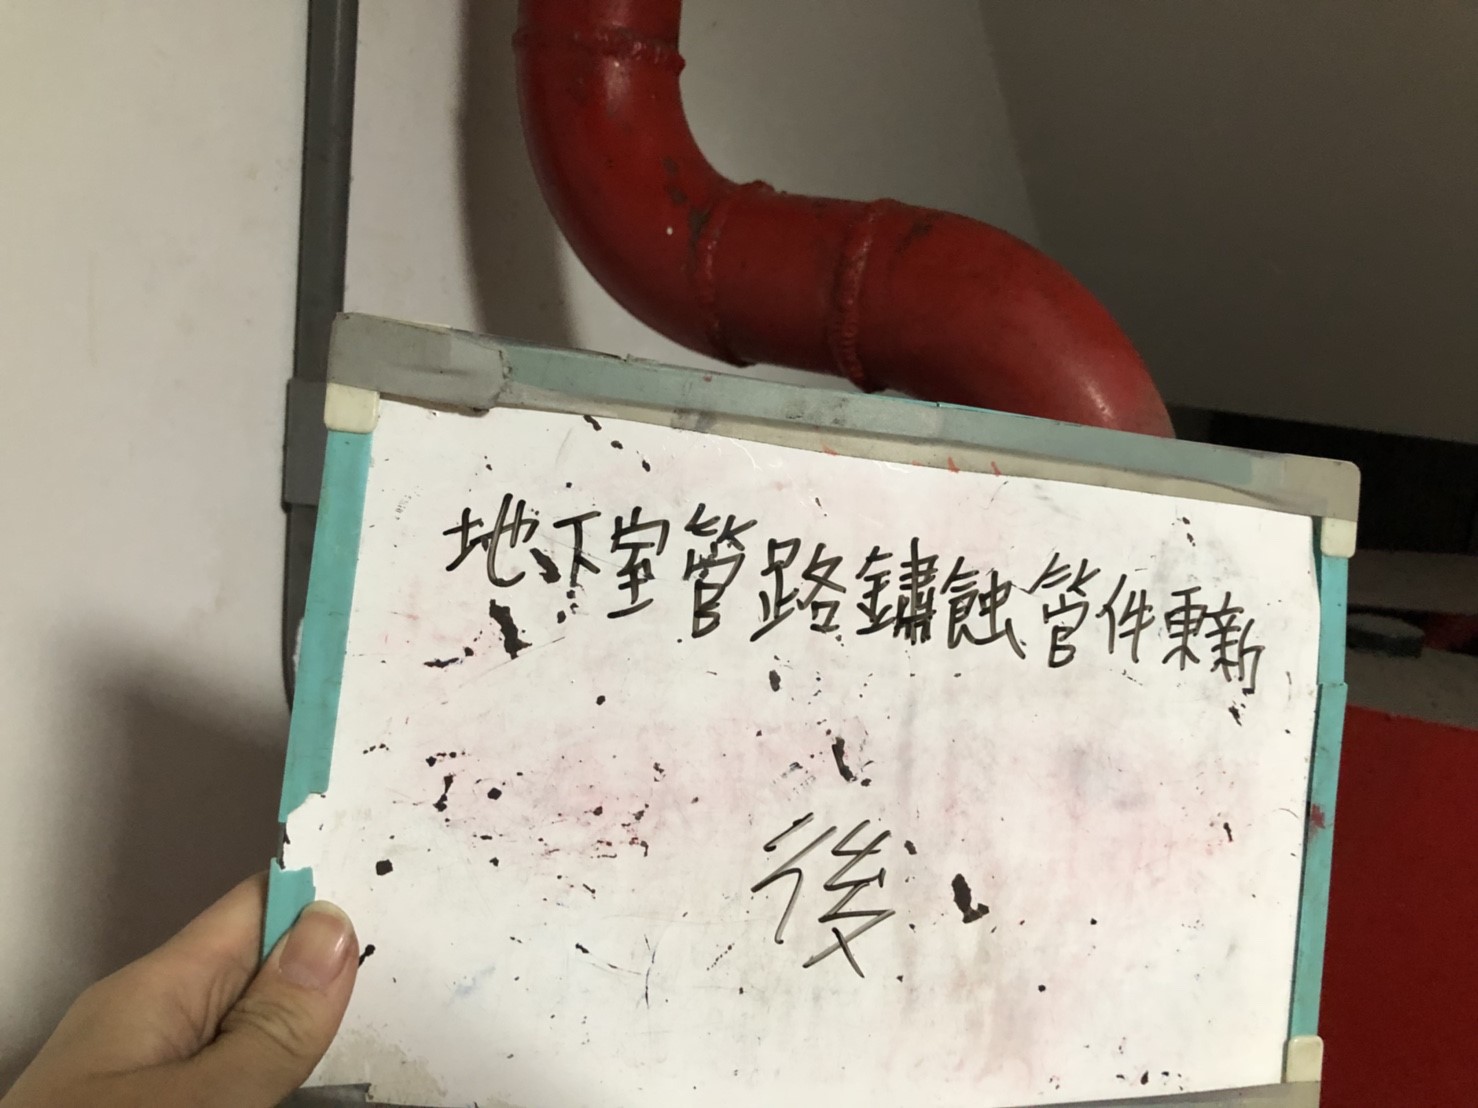 地下室管路鏽蝕管件更新
後